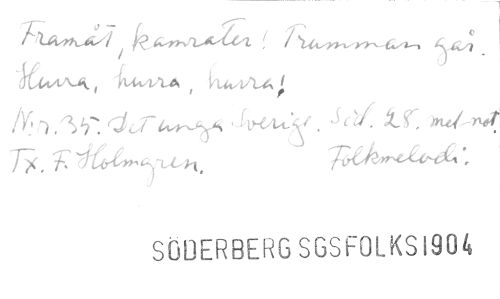 Framåt, kamrater! Trumman går.
Hurra, hurra, hurra!
N:r. 35. Det unga Sverige. Sid. 28. mel-not.
Tx. F. Holmgren. Folkmelodi.
SÖDERBERG SGSFOLKS1904